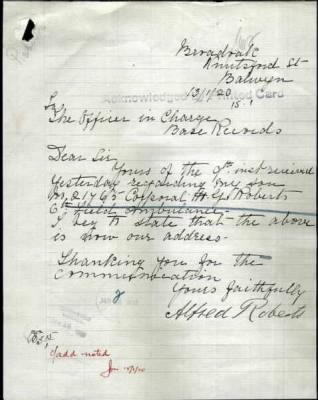 Broadoak
St
Balwyn
13/1/20
Acknowledged by Printed Card
15.1
To
The Officer in Charge
Base Records
Dear Sir
Yours of the 9th inst received
yesterday regarding my son
Corporal H. G. Roberts
6th Field Ambulance
I beg to state that the above
is now our address.
Thanking you for the
communication
Yours faithfully
Alfred Roberts
c/add noted